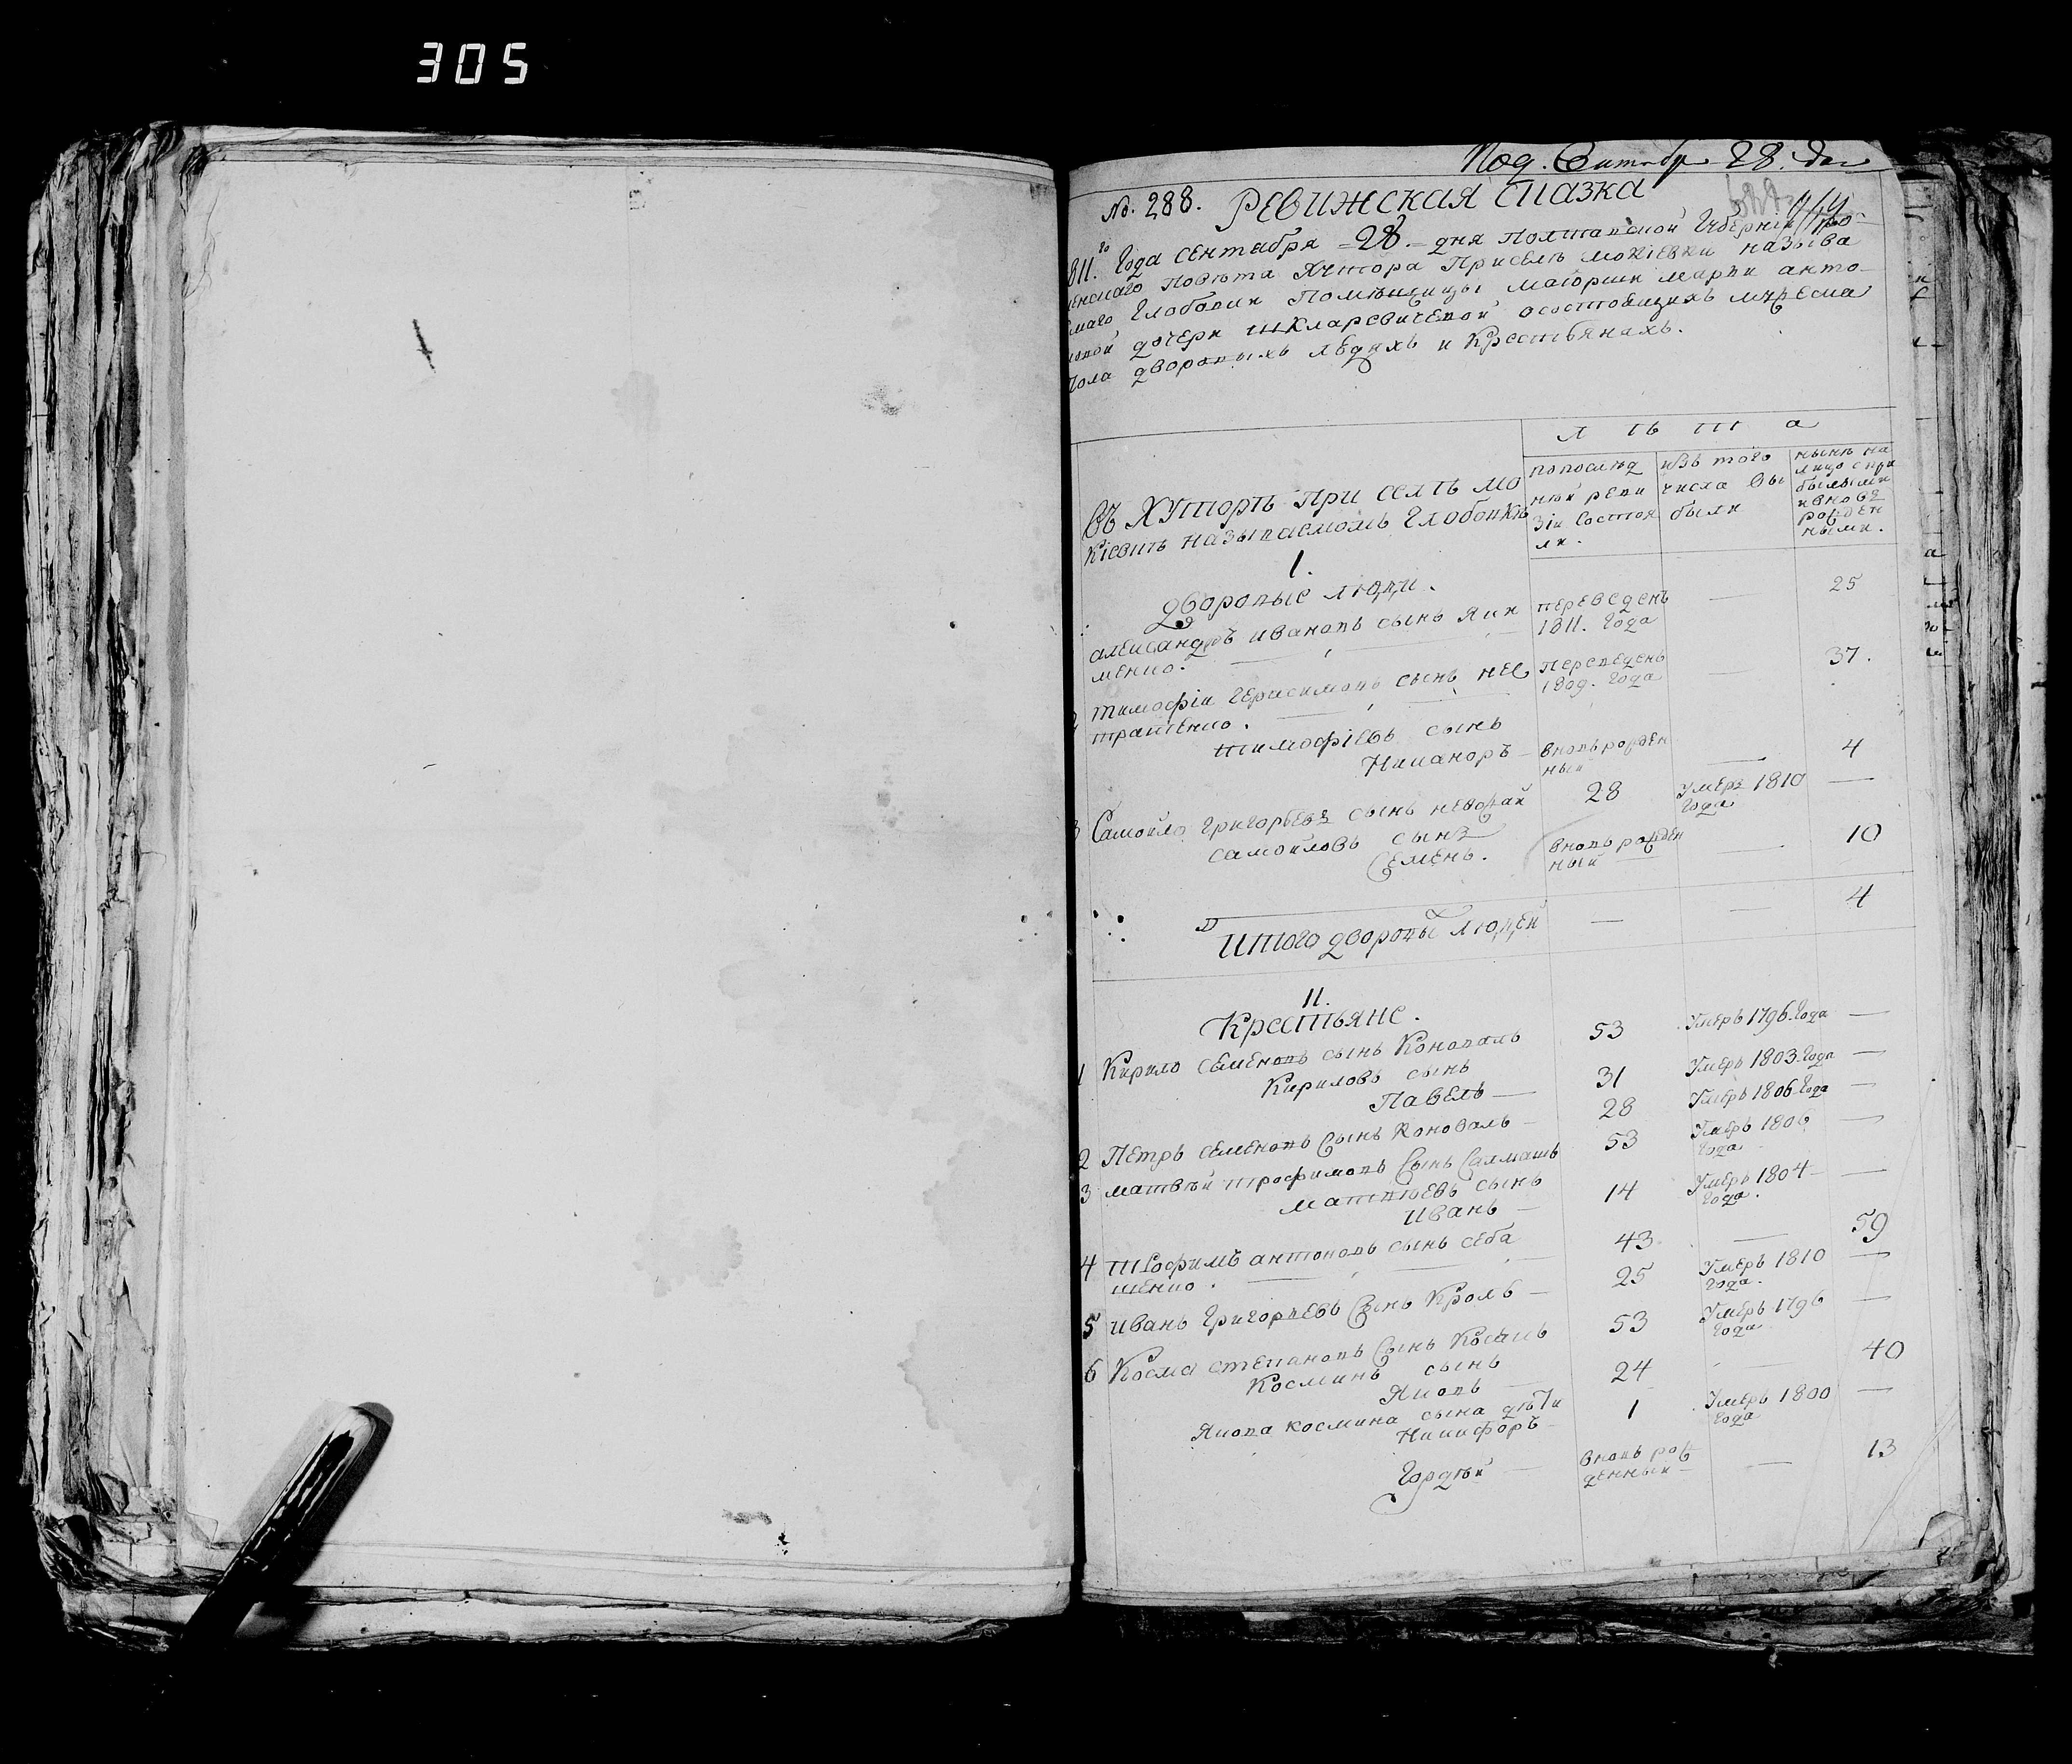 305
Под. Сентябр 28. дня
№. 288. Ревижская сказка
1811.го Года Сентября 28. дня Полтавской Губерніи Ро-
менскаго Повѣта Хутора Приселѣ мокіевки называ
емаго Глобовки Помѣщицы маіорши марьи анто-
новой дочери шкляревичевой осостоящихъ мужеска
Пола дворовыхъ людяхъ и Крестьянахъ.
Л ѣ т а
Въ Хуторѣ при селѣ мо
кіевкѣ называемомъ Глобовкѣ
попослѣд
ней реви
зіи Состоя
ли.
изъ того
числа вы
были
нынѣ на
лицо с при
былыми
ивновь
рожден
ными.
I.
Дворовые люди.
александръ ивановъ сынъ Яки
менко. переведенъ 1811. Года — 25
2 тимофій Герасимовъ сынъ нес
тратенко. переведенъ 1809. Года — 37.
тимофіевъ сынъ
Никаноръ — вновь рожден
ный — 4
3 Самойло Григорьевъ сынъ 28 умеръ 1810 Года —
самойловъ сынъ
Семенъ. вновь рожден
ный — 10
Итого дворовы людей — — 4
II.
Крестьяне.
1 Кирило Семеновъ сынъ Коновалъ 53 Умеръ 1796. Года —
Кириловъ сынъ
Павелъ — 31 Умеръ 1803. Года —
2 Петръ семеновъ Сынъ Коновалъ — 28 Умеръ 1806. Года —
3 матвѣй трофимовъ Сынъ Салмашъ 53 Умеръ 1806 Года —
матвѣевъ сынъ
Иванъ — 14 Умеръ 1804 Года. —
4 трофимъ антоновъ сынъ сева
шенко. 43 — 59
5 иванъ Григорьевъ Сынъ Кроль — 25 Умеръ 1810 Года. —
6 Косма степановъ Сынъ 53 Умеръ 1796 Года —
Косминъ сынъ
Яковъ — 24 — 40
Якова космина сына дѣти
Никифоръ — 1 Умеръ 1800 Года —
Гордѣй — вновь рож
денный — 13